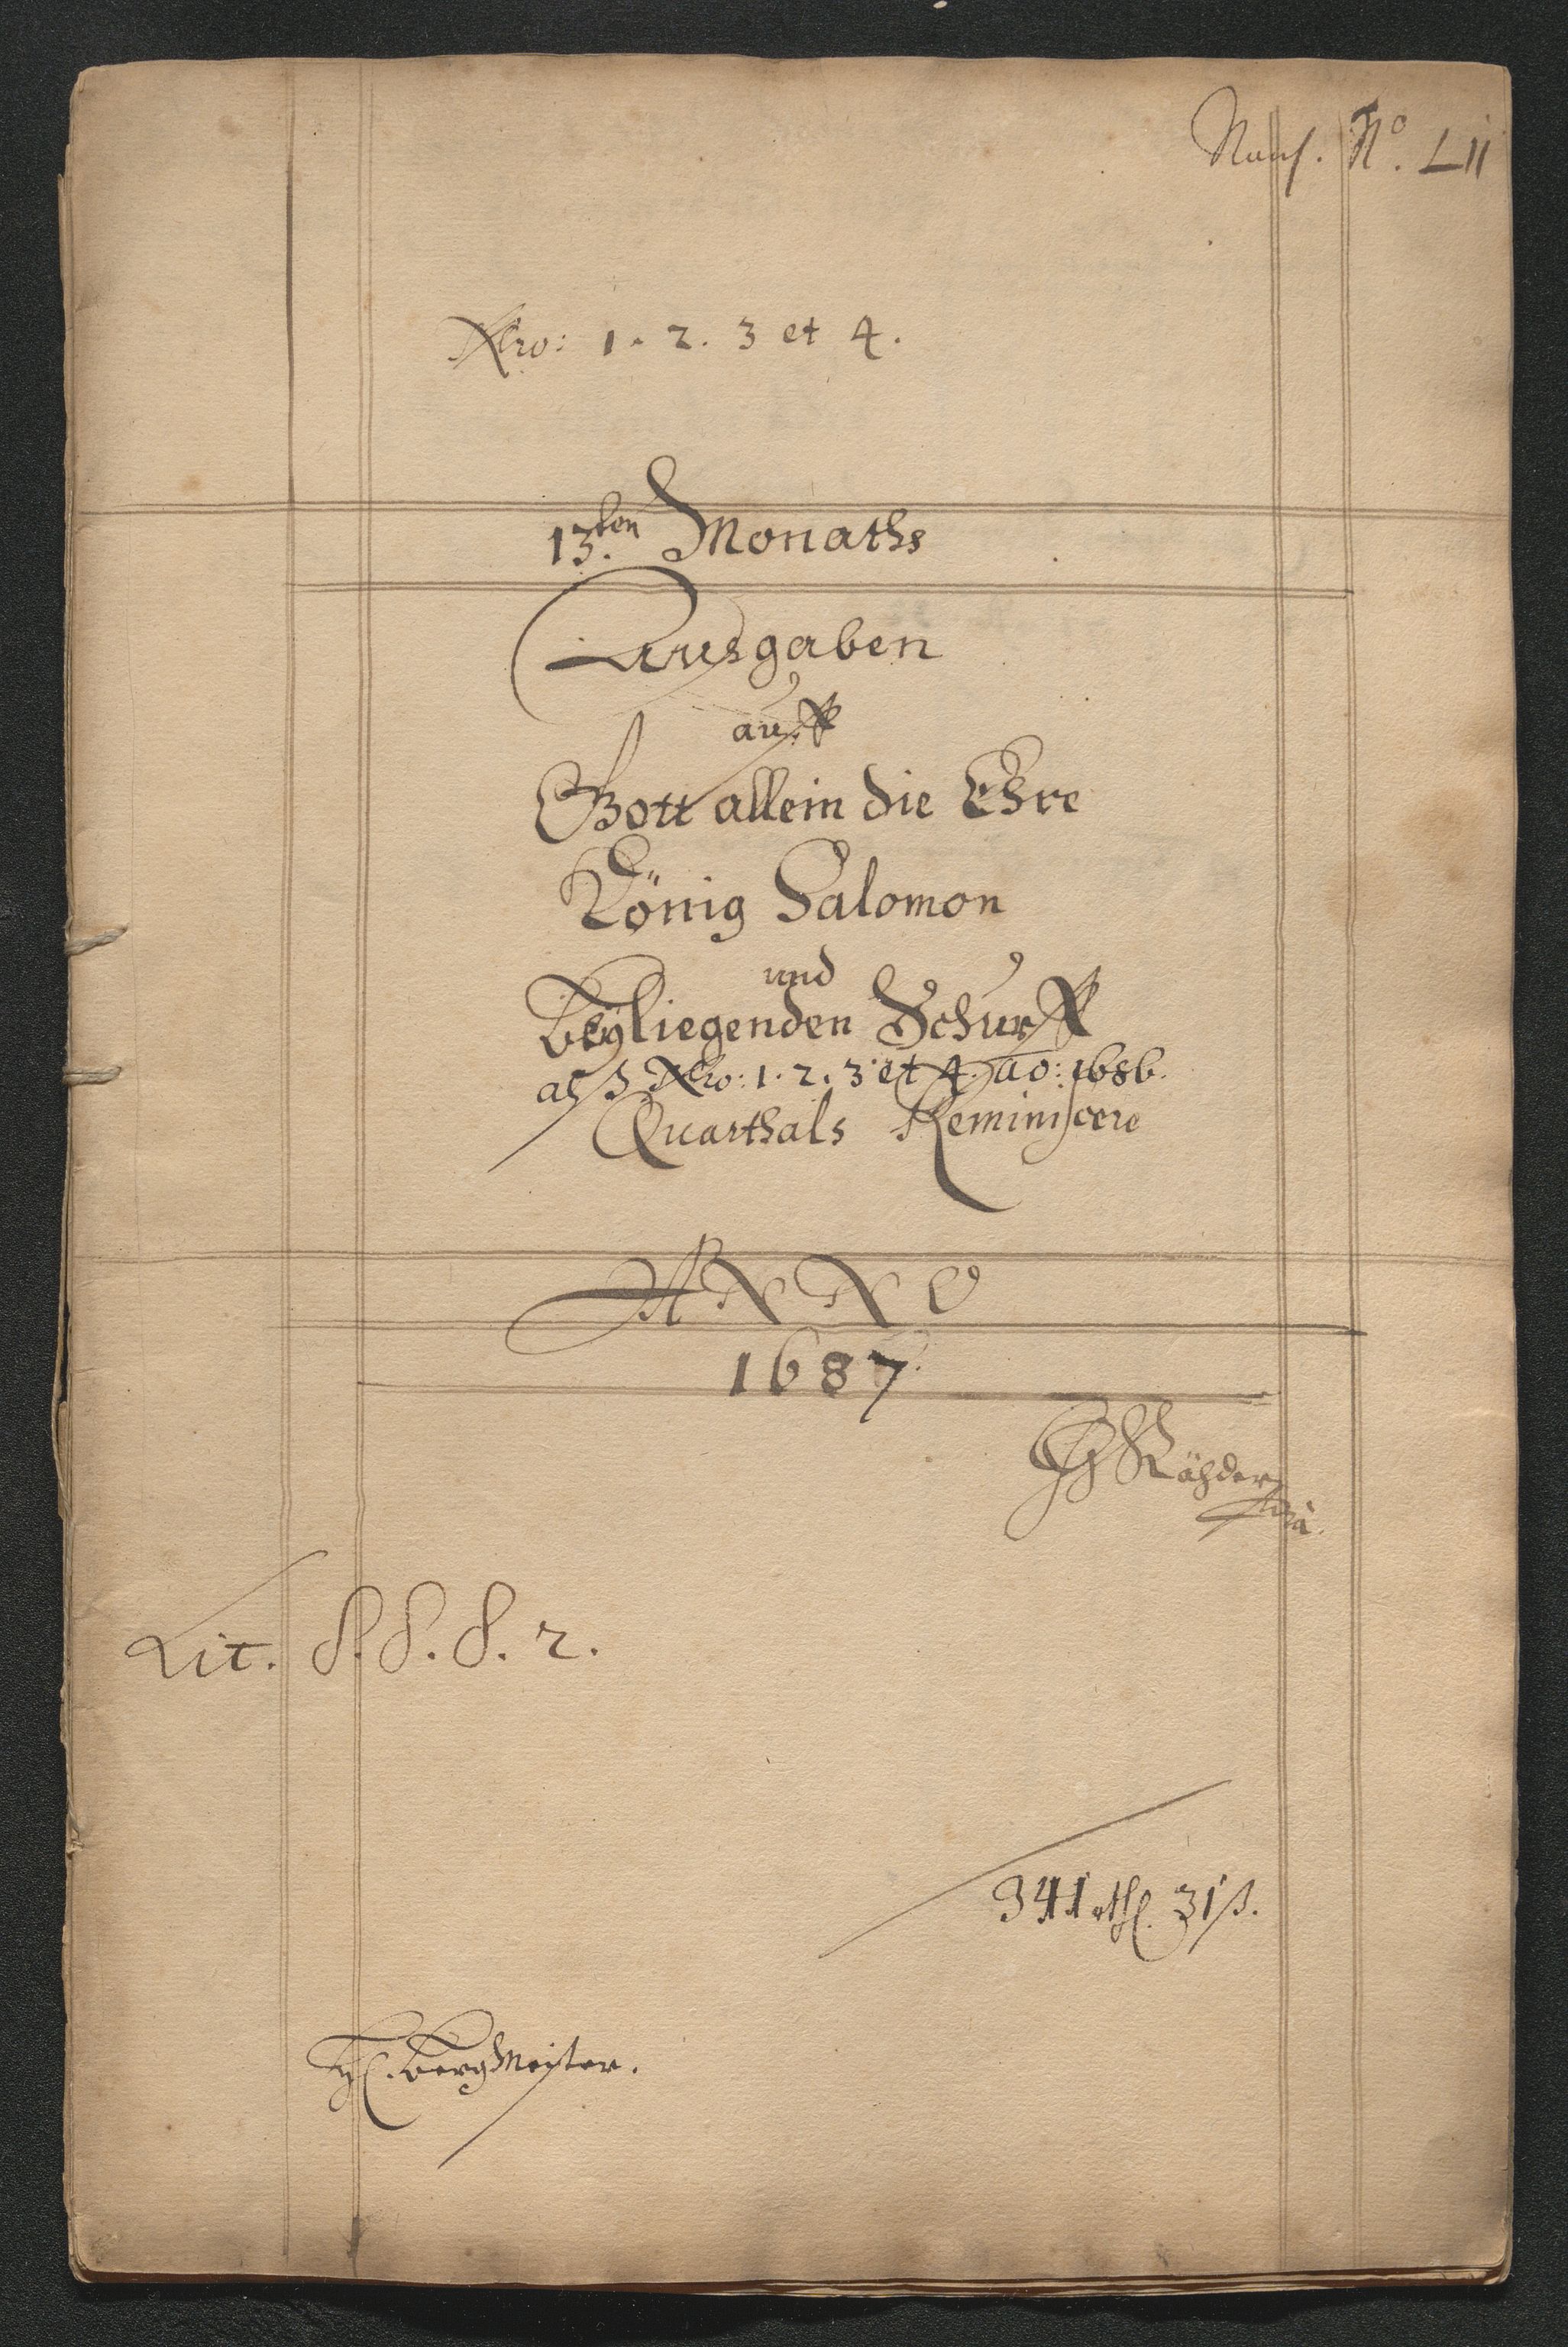 N⁰. LII
Nro: 1. 2. 3 et 4.
13.ten Monaths
Ausgaben
auff
Gott allein die Ehre
König Salomon
und
beyliegenden Schurff
alß Nro: 1. 2. 3 et 4. ao: 1686.
Quarthals Reminiscere
ANNO
1687.
Lit. S. S. S. 2.
341 rthl. 31 ß.
H. bergMeister.